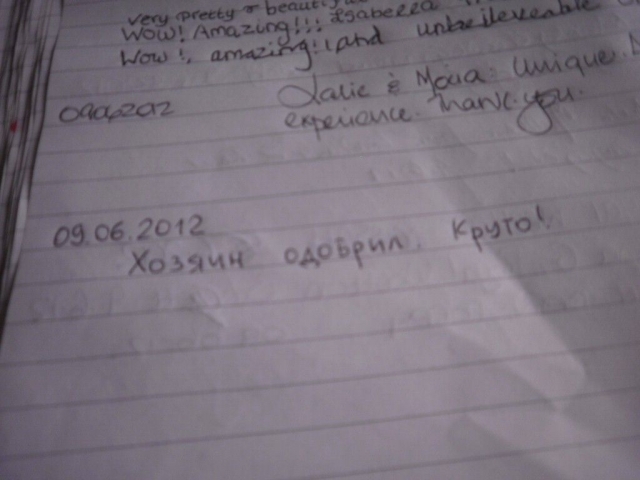 very pretty & beautiful
WOW! Amazing!!! Isabella
Wow! amazing! and unbelieveable
Unique
experience. Thank you.
09.06.2012
Хозяин одобрил. Круто!